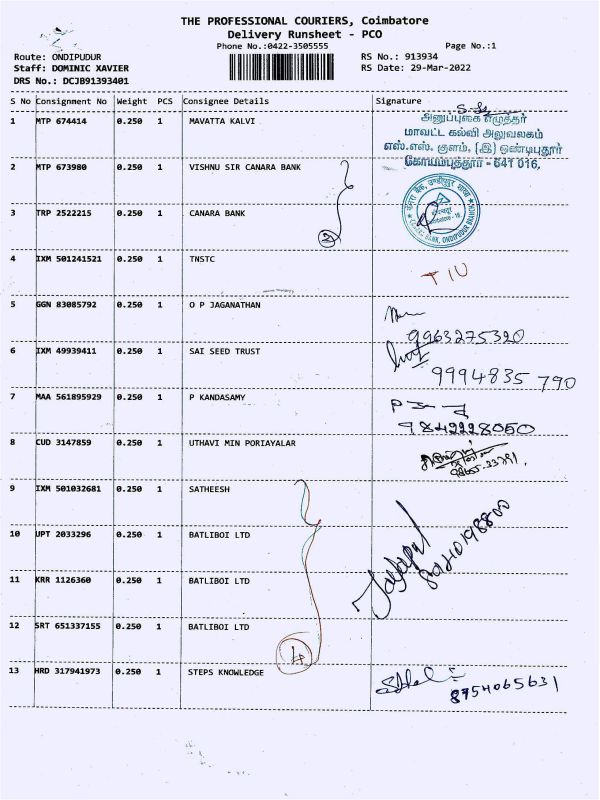 THE PROFESSIONAL COURIERS, Coimbatore
Delivery Runsheet - PCO
Phone No.:0422-3505555
Page No.:1
Route: ONDIPUDUR
RS No.: 913934
Staff: DOMINIC XAVIER
RS Date: 29-Mar-2022
DRS No.: DCJB91393401
S No Consignment No Weight PCS Consignee Details Signature
1 MTP 674414 0.250 1 MAVATTA KALVI
அனுப்புகை எழுத்தர்
மாவட்ட கல்வி அலுவலகம்
எஸ்.எஸ். குளம், (இ) ஒண்டிபுதூர்
கோயம்புத்தூர் - 641 016.
2 MTP 673980 0.250 1 VISHNU SIR CANARA BANK
3 TRP 2522215 0.250 1 CANARA BANK
2
CANARA BANK, ONDIPUDUR BRANCH
4 IXM 501241521 0.250 1 TNSTC
5 GGN 83085792 0.250 1 O P JAGANATHAN
9963275320
6 IXM 49939411 0.250 1 SAI SEED TRUST
9994835 790
7 MAA 561895929 0.250 1 P KANDASAMY
9842228050
8 CUD 3147859 0.250 1 UTHAVI MIN PORIAYALAR
9 IXM 501032681 0.250 1 SATHEESH
10 UPT 2033296 0.250 1 BATLIBOI LTD
11 KRR 1126360 0.250 1 BATLIBOI LTD
12 SRT 651337155 0.250 1 BATLIBOI LTD
4
13 HRD 317941973 0.250 1 STEPS KNOWLEDGE
8754065631